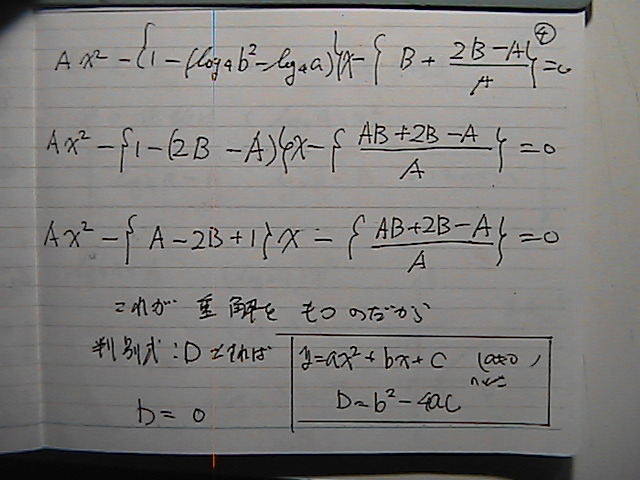 ④
Ax² - {1 - (log₄b² - log₄a)}x - {B + (2B - A)/A} = 0
Ax² - {1 - (2B - A)}x - {(AB + 2B - A)/A} = 0
Ax² - {A - 2B + 1}x - {(AB + 2B - A)/A} = 0
これが 重解を もつ のだから
判別式:Dとすれば
y = ax² + bx + c (a≠0)
D = b² - 4ac
D = 0